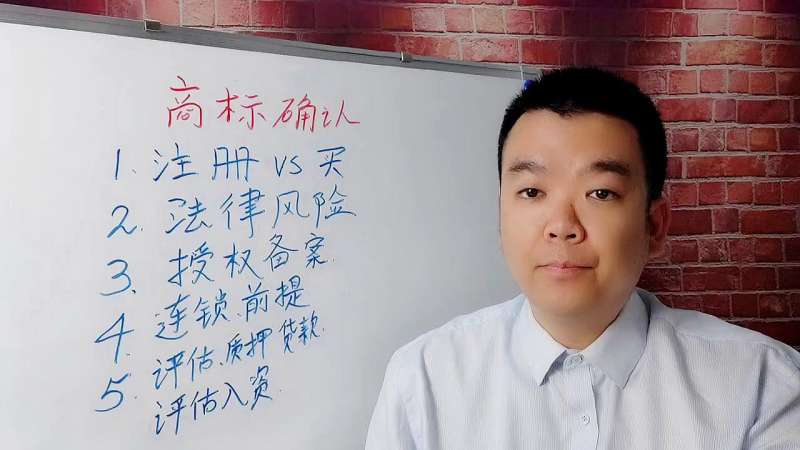 商标确认
1. 注册 vs 买
2. 法律风险
3. 授权备案.
4. 连锁、前提
5. 评估、质押贷款.
评估入资.